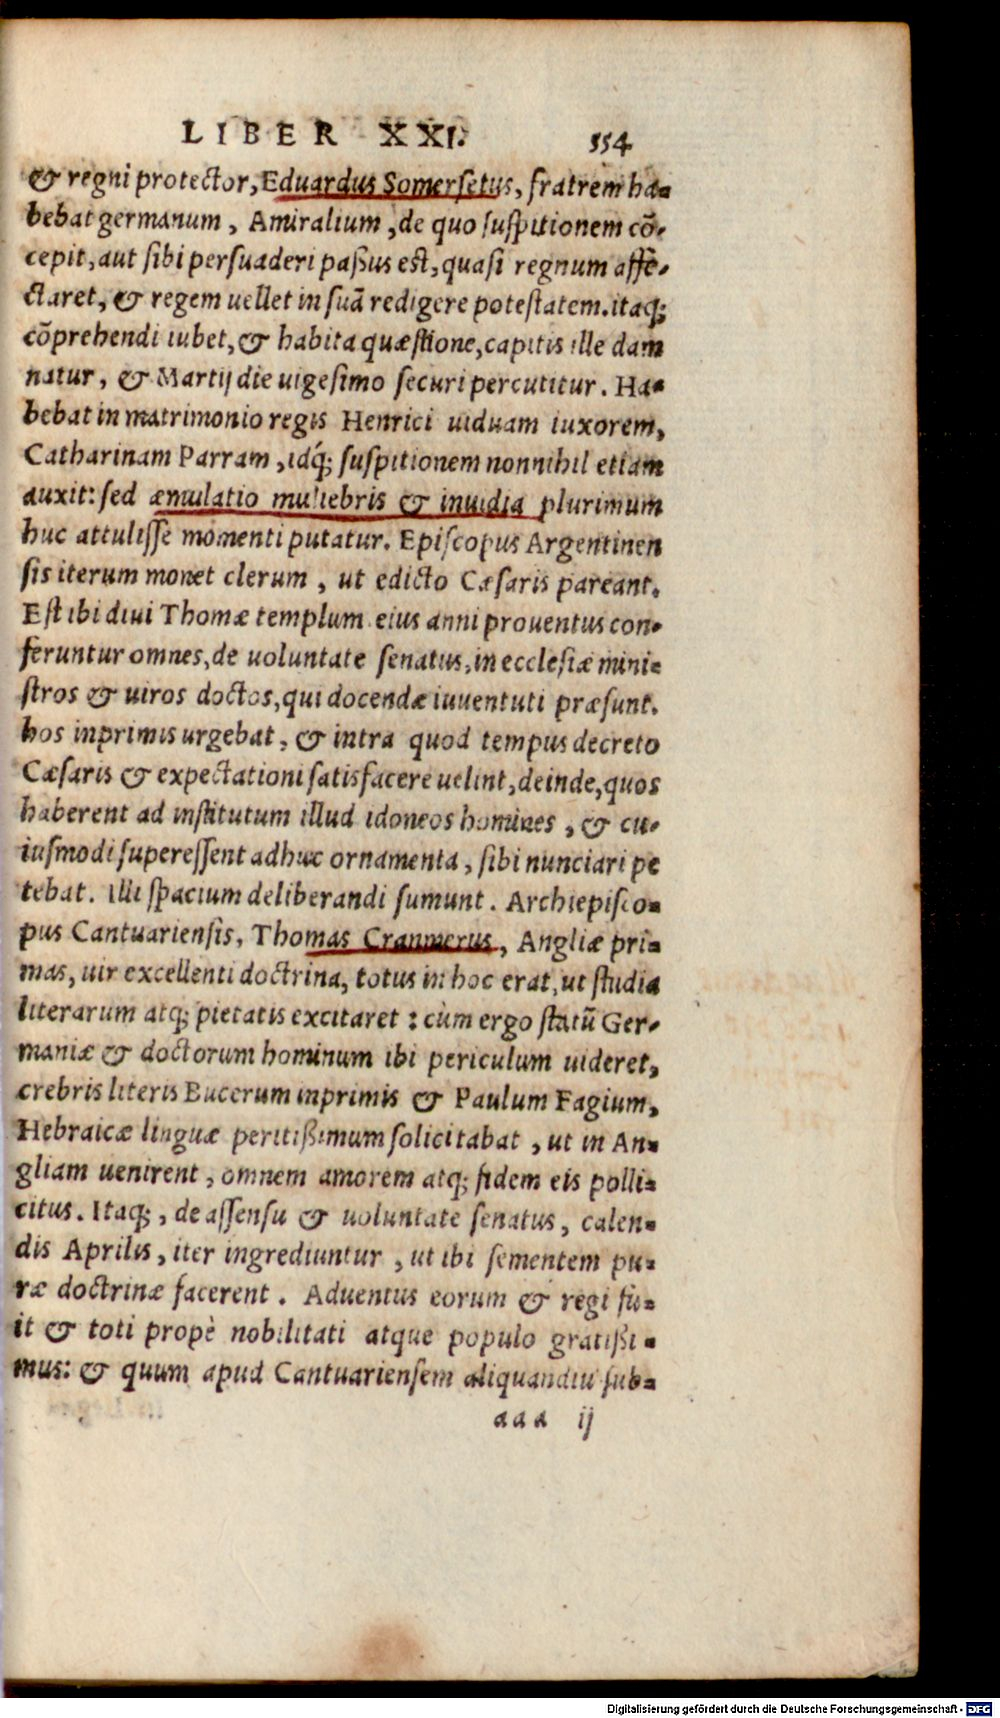 LIBER XXI. 554
& regni protector, Eduardus Somersetus, fratrem ha-
bebat germanum, Amiralium, de quo suspitionem cō-
cepit, aut sibi persuaderi paßus est, quasi regnum affe-
ctaret, & regem uellet in suā redigere potestatem. itaq;
cōprehendi iubet, & habita quæstione, capitis ille dam
natur, & Martij die uigesimo securi percutitur. Ha-
bebat in matrimonio regis Henrici uiduam iuxorem,
Catharinam Parram, idq́; suspitionem nonnihil etiam
auxit: sed æmulatio muliebris & inuidia plurimum
huc attulisse momenti putatur. Episcopus Argentinen
sis iterum monet clerum, ut edicto Cæsaris pareant.
Est ibi diui Thomæ templum eius anni prouentus con-
feruntur omnes, de uoluntate senatus, in ecclesiæ mini-
stros & uiros doctos, qui docendæ iuuentuti præsunt.
hos inprimis urgebat, & intra quod tempus decreto
Cæsaris & expectationi satisfacere uelint, deinde, quos
haberent ad institutum illud idoneos homines, & cu-
iusmodi superessent adhuc ornamenta, sibi nunciari pe
tebat. Illi spacium deliberandi sumunt. Archiepisco-
pus Cantuariensis, Thomas Cranmerus, Angliæ pri-
mas, uir excellenti doctrina, totus in hoc erat, ut studia
literarum atq; pietatis excitaret: cùm ergo statū Ger-
maniæ & doctorum hominum ibi periculum uideret,
crebris literis Bucerum inprimis & Paulum Fagium,
Hebraicæ linguæ peritißimum solicitabat, ut in An-
gliam uenirent, omnem amorem atq; fidem eis polli-
citus. Itaq;, de assensu & uoluntate senatus, calen-
dis Aprilis, iter ingrediuntur, ut ibi sementem pu-
ræ doctrinæ facerent. Aduentus eorum & regi fu-
it & toti propè nobilitati atque populo gratißi-
mus: & quum apud Cantuariensem aliquandiu sub-
aaa ij
Digitalisierung gefördert durch die Deutsche Forschungsgemeinschaft - DFG